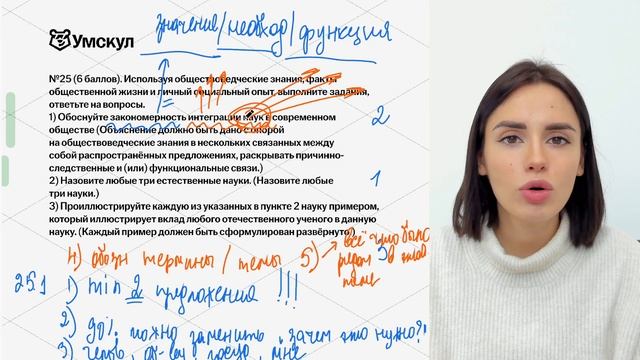 значение/необход/функция
Умскул
№25 (6 баллов). Используя обществоведческие знания, факты
общественной жизни и личный социальный опыт, выполните задания,
ответьте на вопросы.
1) Обоснуйте закономерность интеграции наук в современном
обществе (Объяснение должно быть дано с опорой
2
на обществоведческие знания в нескольких связанных между
собой распространённых предложениях, раскрывать причинно-
следственные и (или) функциональные связи.)
2) Назовите любые три естественные науки. (Назовите любые
1
три науки.)
3) Проиллюстрируйте каждую из указанных в пункте 2 науку примером,
который иллюстрирует вклад любого отечественного ученого в данную
науку. (Каждый пример должен быть сформулирован развёрнуто.)
3
4) обозн термины / темы 5) всё что было
рядом
25.1 1) min 2 предложения !!!
2) до% можно заменить "зачем это нужно?"
3)